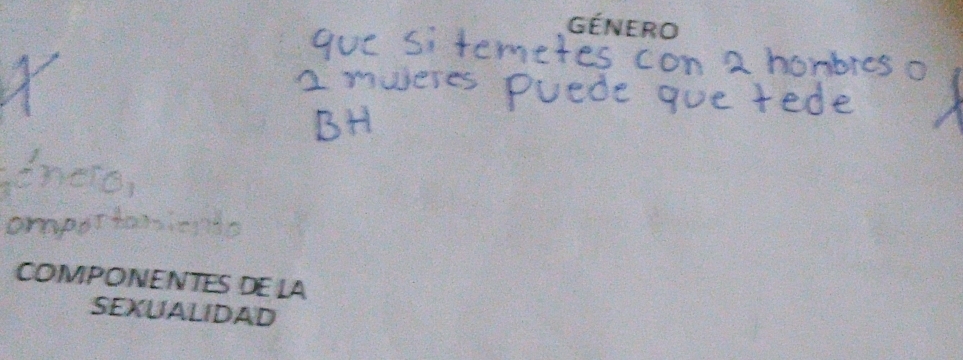 GÉNERO
que si temetes con 2 hombres o
2 mujeres puede que tede
BH
género,
omportamiento
COMPONENTES DE LA
SEXUALIDAD